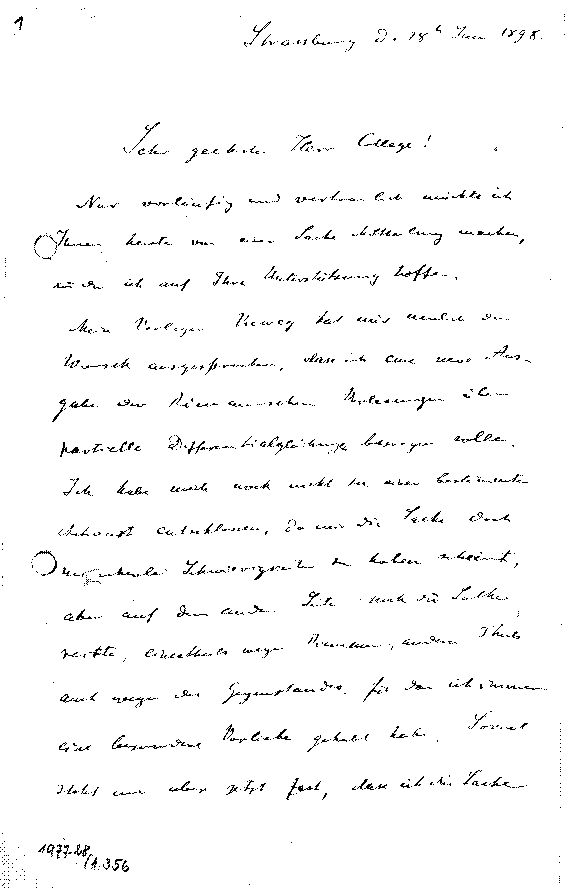 1
Strassburg d. 18t Jan 1898.
Sehr geehrter Herr College!
Nur vorläufig und vertraulich möchte ich
Ihnen heute von einer Sache Mittheilung machen,
zu der ich auf Ihre Unterstützung hoffe.
Mein Verleger Vieweg hat mir neulich den
Wunsch ausgesprochen, dass ich eine neue Aus-
gabe der Riemannschen Vorlesungen über
partielle Differentialgleichungen besorgen solle.
Ich habe mich noch nicht zu einer bestimmten
Antwort entschlossen, da mir die Sache doch
mancherlei Schwierigkeiten zu haben scheint,
aber auf der anderen Seite mich die Sache
reizte, einestheils wegen Riemann, andern Theils
auch wegen des Gegenstandes, für den ich immer
eine besondere Vorliebe gehabt habe. Soviel
steht mir aber jetzt fest, dass ich die Sache
1977-28/A.356